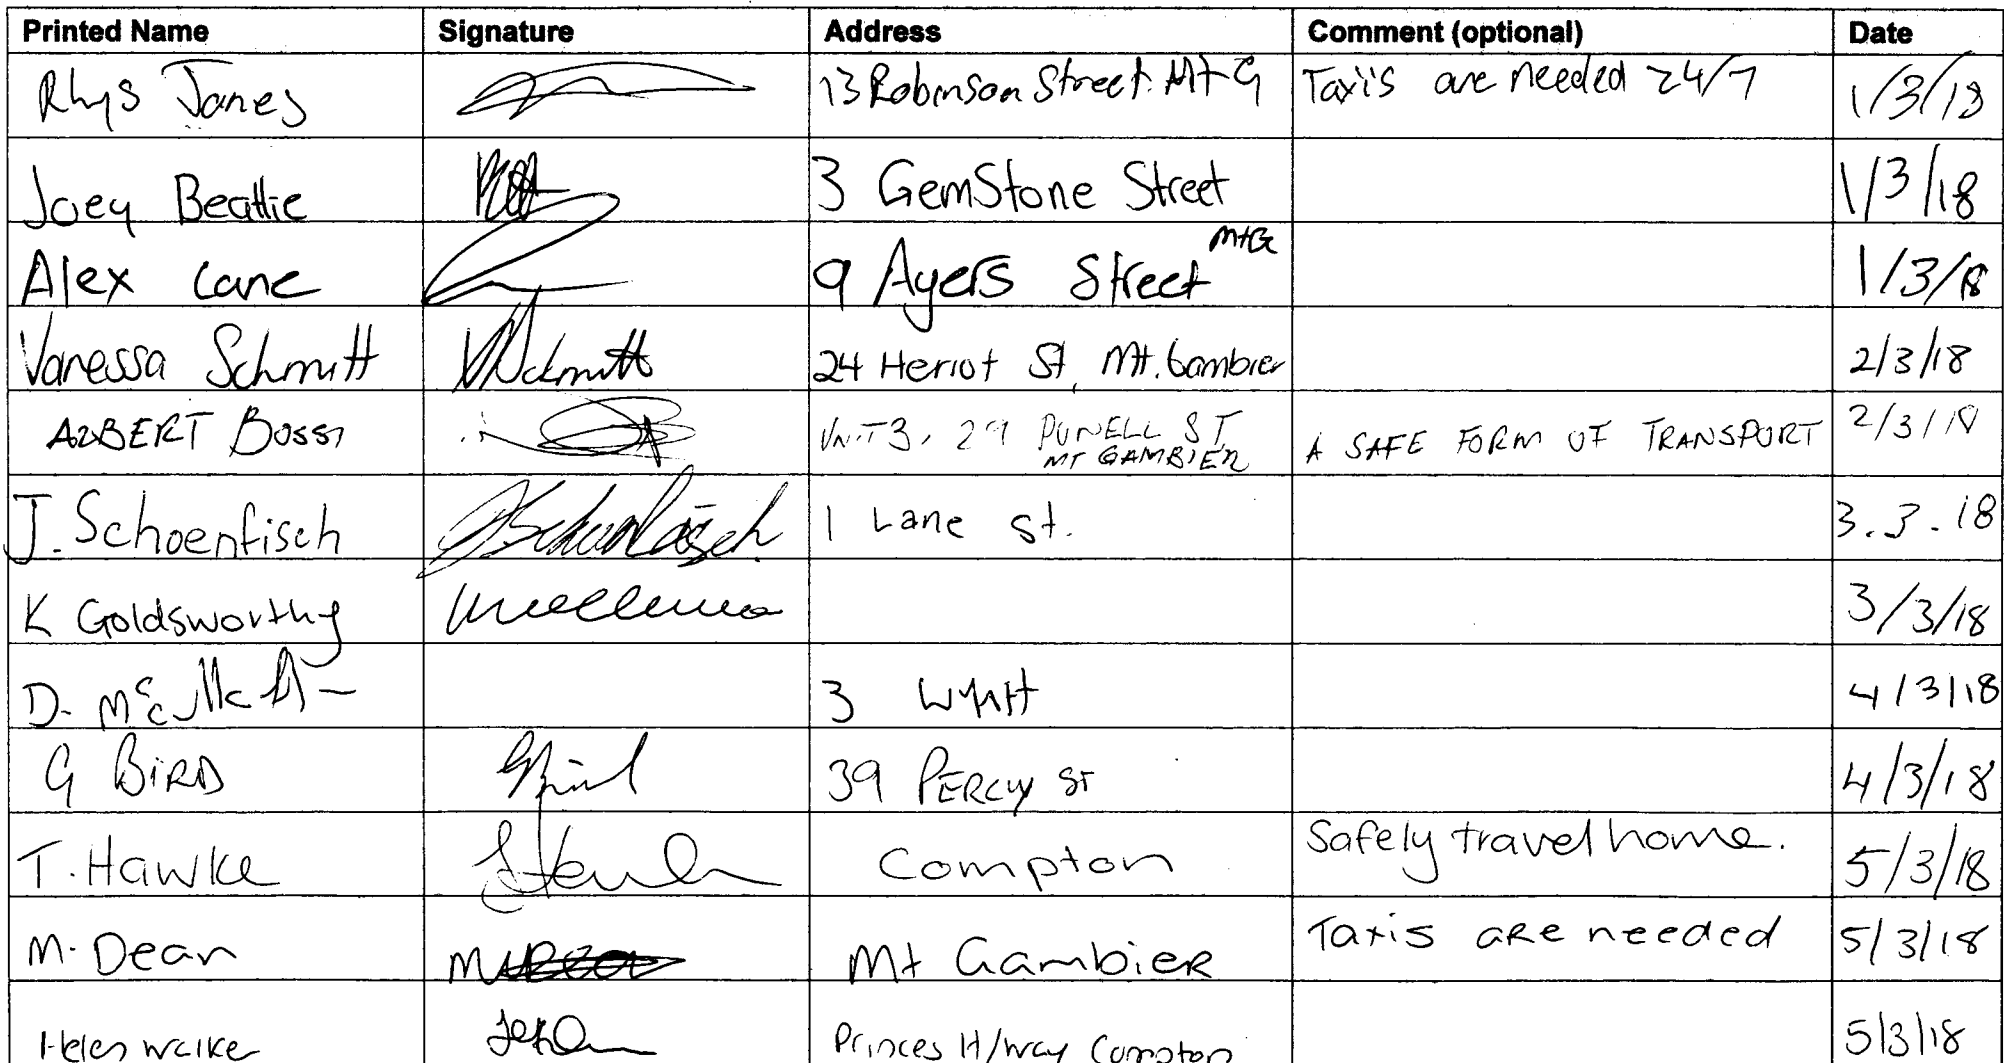 Printed Name Signature Address Comment (optional) Date
Rhys Janes 13 Robinson Street. Mt G Taxi's are needed 24/7 1/3/18
Joey Beattie 3 GemStone Street 1/3/18
Alex Lane 9 Ayers Street MtG 1/3/18
Vanessa Schmitt VSchmitt 24 Heriot St, Mt. Gambier 2/3/18
ALBERT BOSSI UNIT 3, 29 PUNELL ST, A SAFE FORM OF TRANSPORT 2/3/18
MT GAMBIER
J. Schoenfisch JSchoenfisch 1 Lane St. 3.3.18
K Goldsworthy 3/3/18
D. 3 Wyatt 4/3/18
G BIRD GBird 39 PERCY ST 4/3/18
T. Hawke Compton Safely travel home. 5/3/18
M. Dean Mt Gambier Taxis are needed 5/3/18
Helen Walker Princes H/way Compton 5/3/18